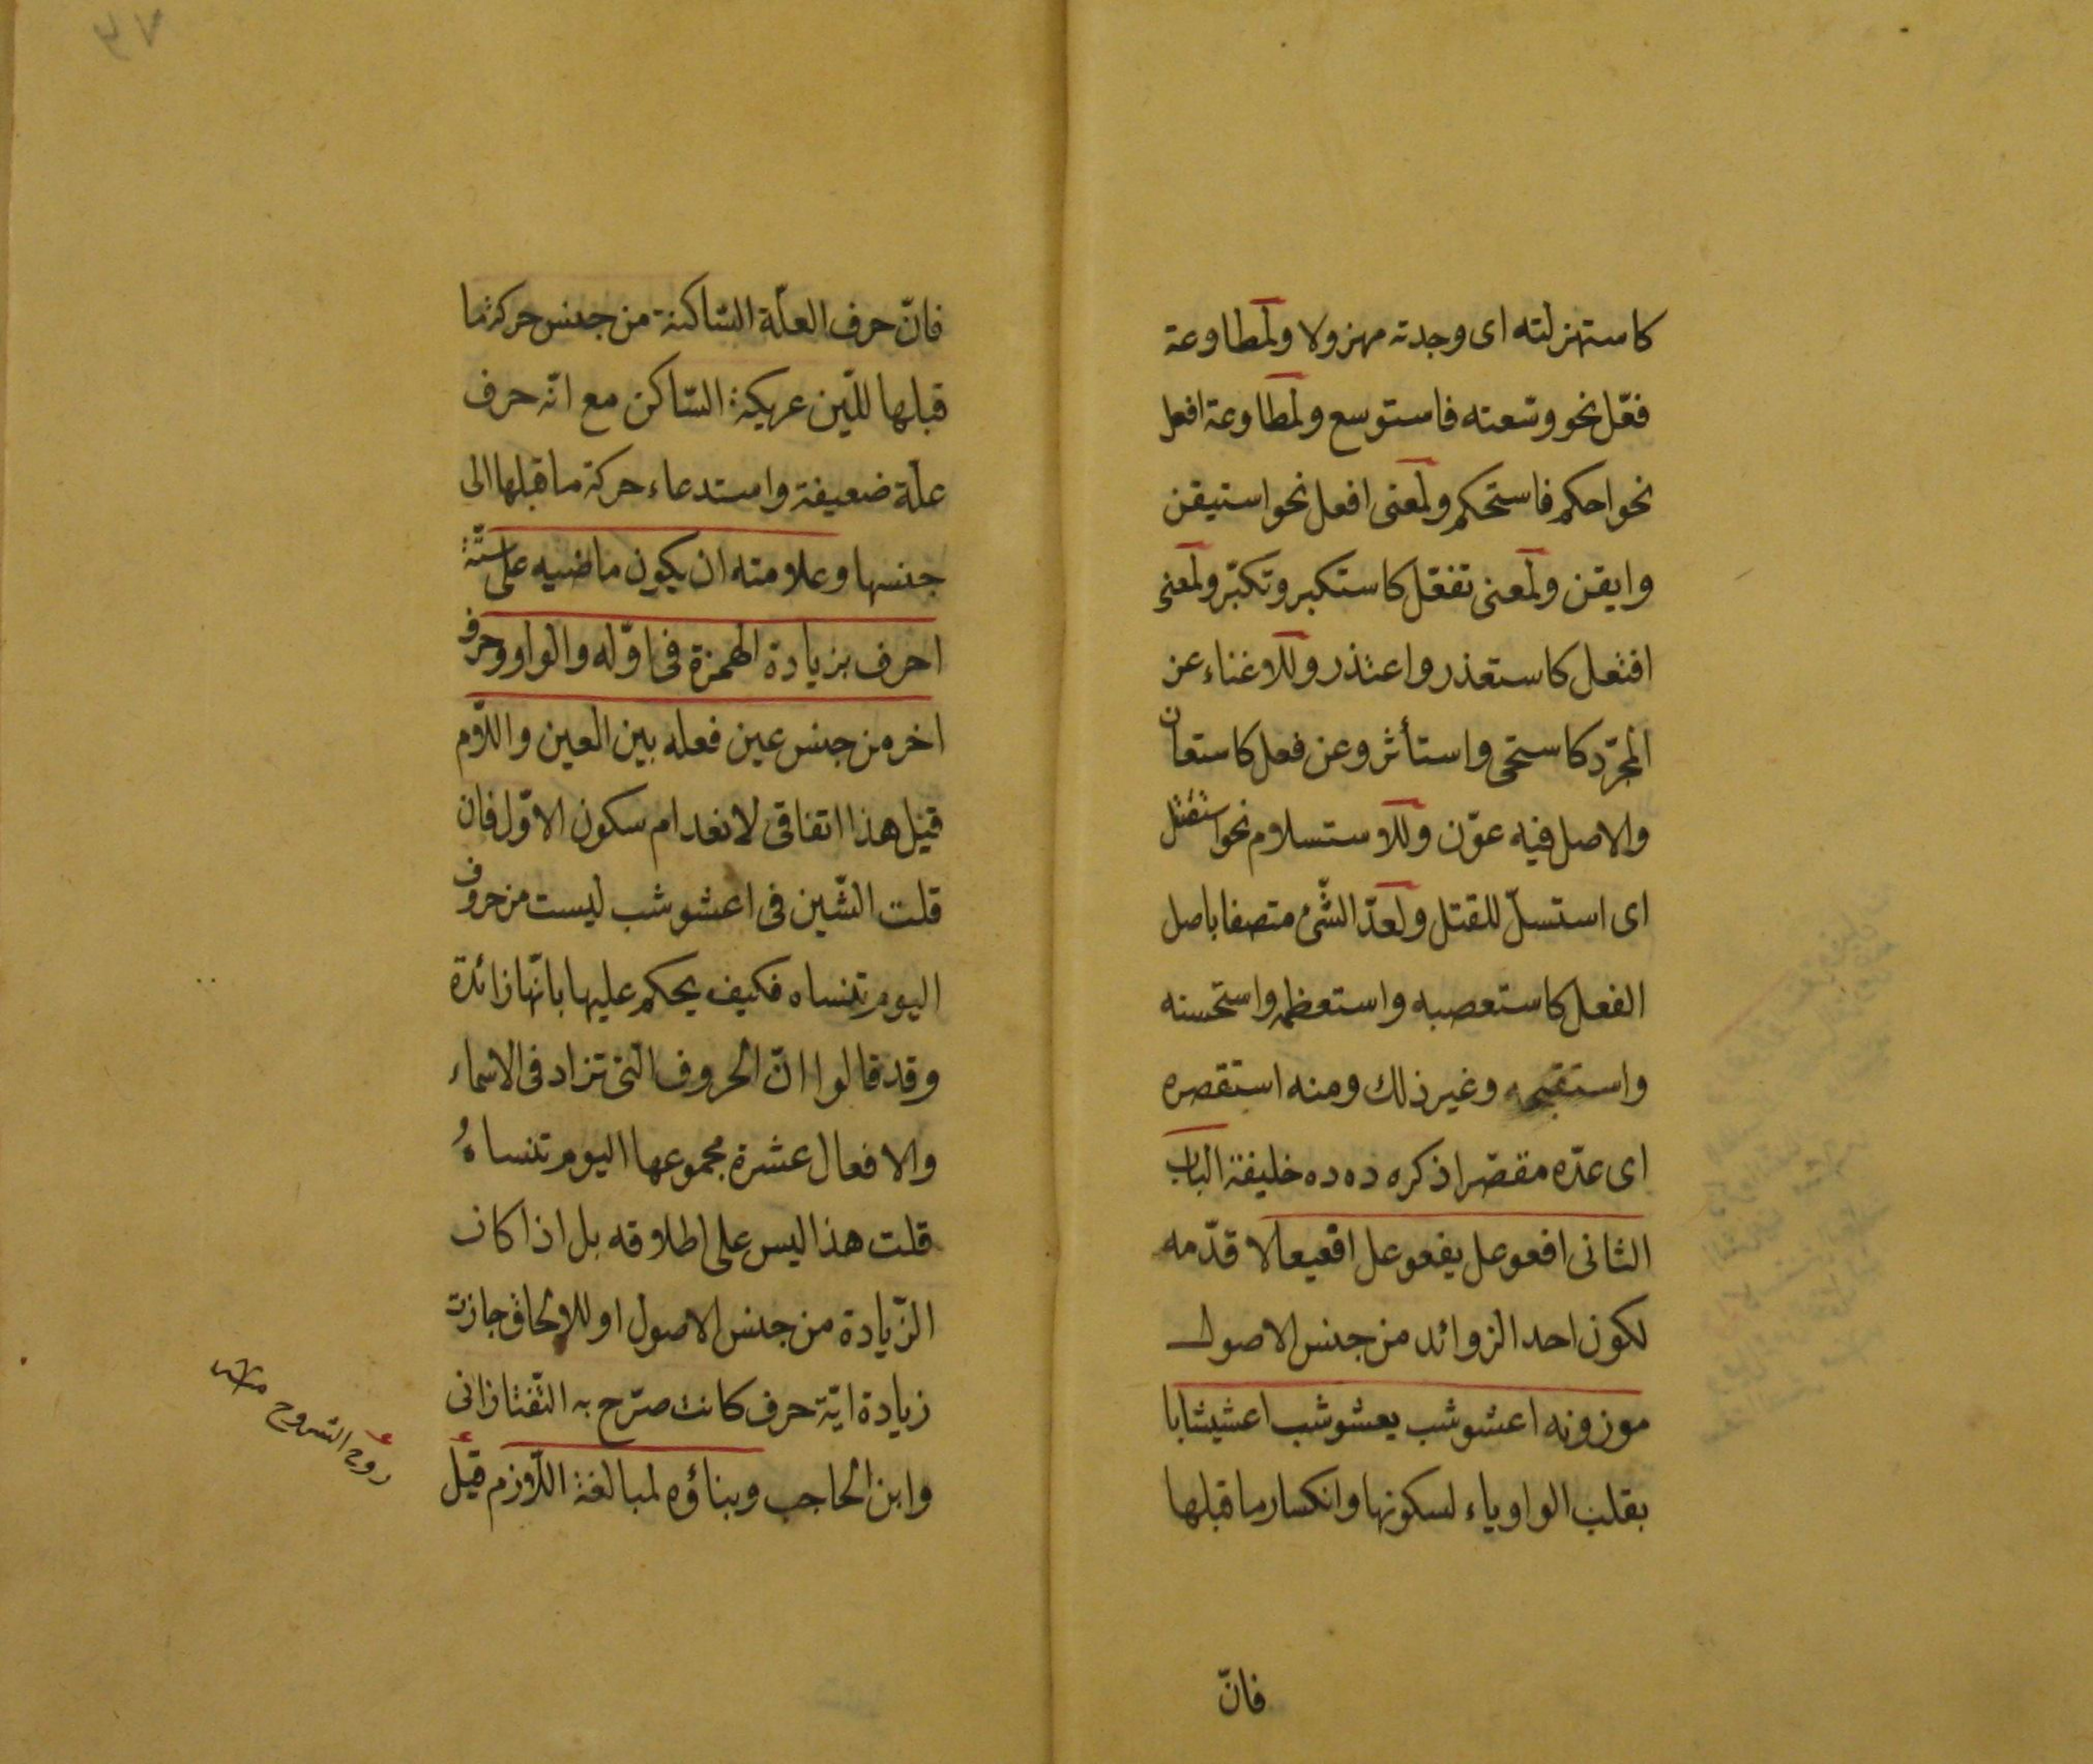 كاستهزلته اى وجدته مهزولا ولمطاوعة
فعّل نحو وسّعته فاستوسع ولمطاوعة افعل
نحو احكم فاستحكم ولمعنى افعل نحو استيقن
وايقن ولمعنى تفعّل كاستكبر وتكبّر ولمعنى
افتعل كاستعذر واعتذر وللاغناء عن
المجرّد كاستحى واستأثر وعن فعل كاستعان
والاصل فيه عوّن وللاستسلام نحو استقتل
اى استسلّ للقتل ولعدّ الشّئ متصفا باصل
الفعل كاستعصبه واستعظمه واستحسنه
واستقبحه وغير ذلك ومنه استقصره
اى عدّه مقصّرا ذكره ده ده خليفة الباب
الثانى افعوعل يفعوعل افعيعالا قدّمه
لكون احد الزوائد من جنس الاصول
موزونه اعشوشب يعشوشب اعشيشابا
بقلب الواو ياء لسكونها وانكسار ما قبلها
فانّ
فانّ حرف العلّة السّاكنة من جنس حركة ما
قبلها للّين عريكة السّاكن مع انّه حرف
علّة ضعيفة واستدعاء حركة ما قبلها الى
جنسها وعلامته ان يكون ماضيه على ستّة
احرف بزيادة الهمزة فى اوّله والواو وحرف
اخر من جنس عين فعله بين العين واللّام
قيل هذا اتفاقى لانعدام سكون الاوّل فان
قلت الشّين فى اعشوشب ليست من حروف
اليوم تنساه فكيف يحكم عليها بانّها زائدة
وقد قالوا انّ الحروف التى تزاد فى الاسماء
والافعال عشرة مجموعها اليوم تنساهُ
قلت هذا ليس على اطلاقه بل اذا كان
الزّيادة من جنس الاصول او للالحاق جازت
زيادة ايّة حرف كانت صرّح به التّفتازانى
وابن الحاجب وبناؤه لمبالغة اللّازم قيل
روح الشروح